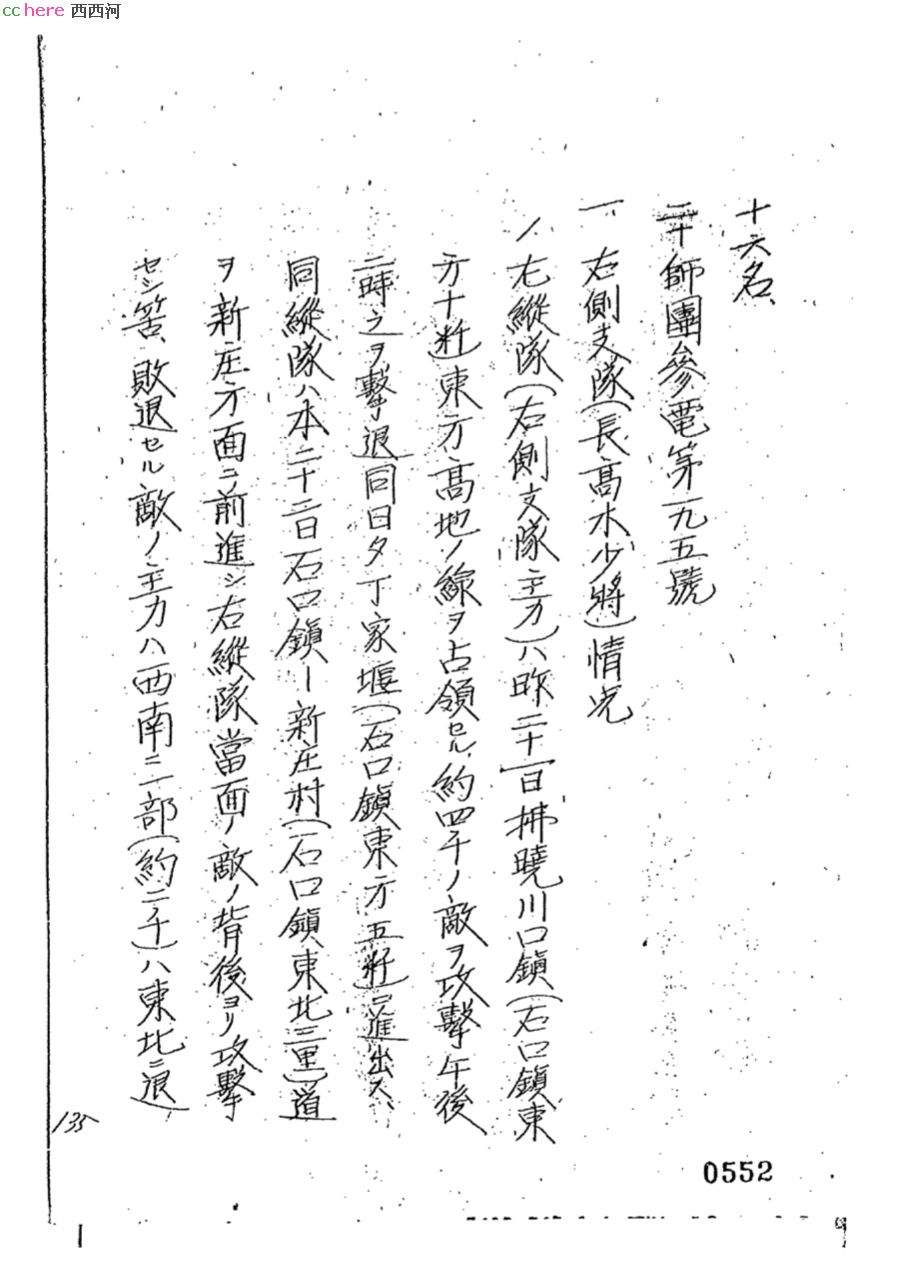 cchere 西西河
十六名、
二十師團參電第一九五號
一、右側支隊(長高木少將)情况
1 左縱隊(右側支隊主力)ハ昨二十一日拂曉川口鎭(石口鎭東
方十粁)東方高地ノ線ヲ占領セル約四千ノ敵ヲ攻擊午後
二時之ヲ擊退同日夕丁家堰(石口鎭東方五粁)ニ進出ス、
同縱隊ハ本二十二日石口鎭ー新庄村(石口鎭東北三里)道
ヲ新庄方面ニ前進シ右縱隊當面ノ敵ノ背後ヨリ攻擊
セシ筈、敗退セル敵ノ主力ハ西南ニ一部(約二千)ハ東北ニ退
135
0552